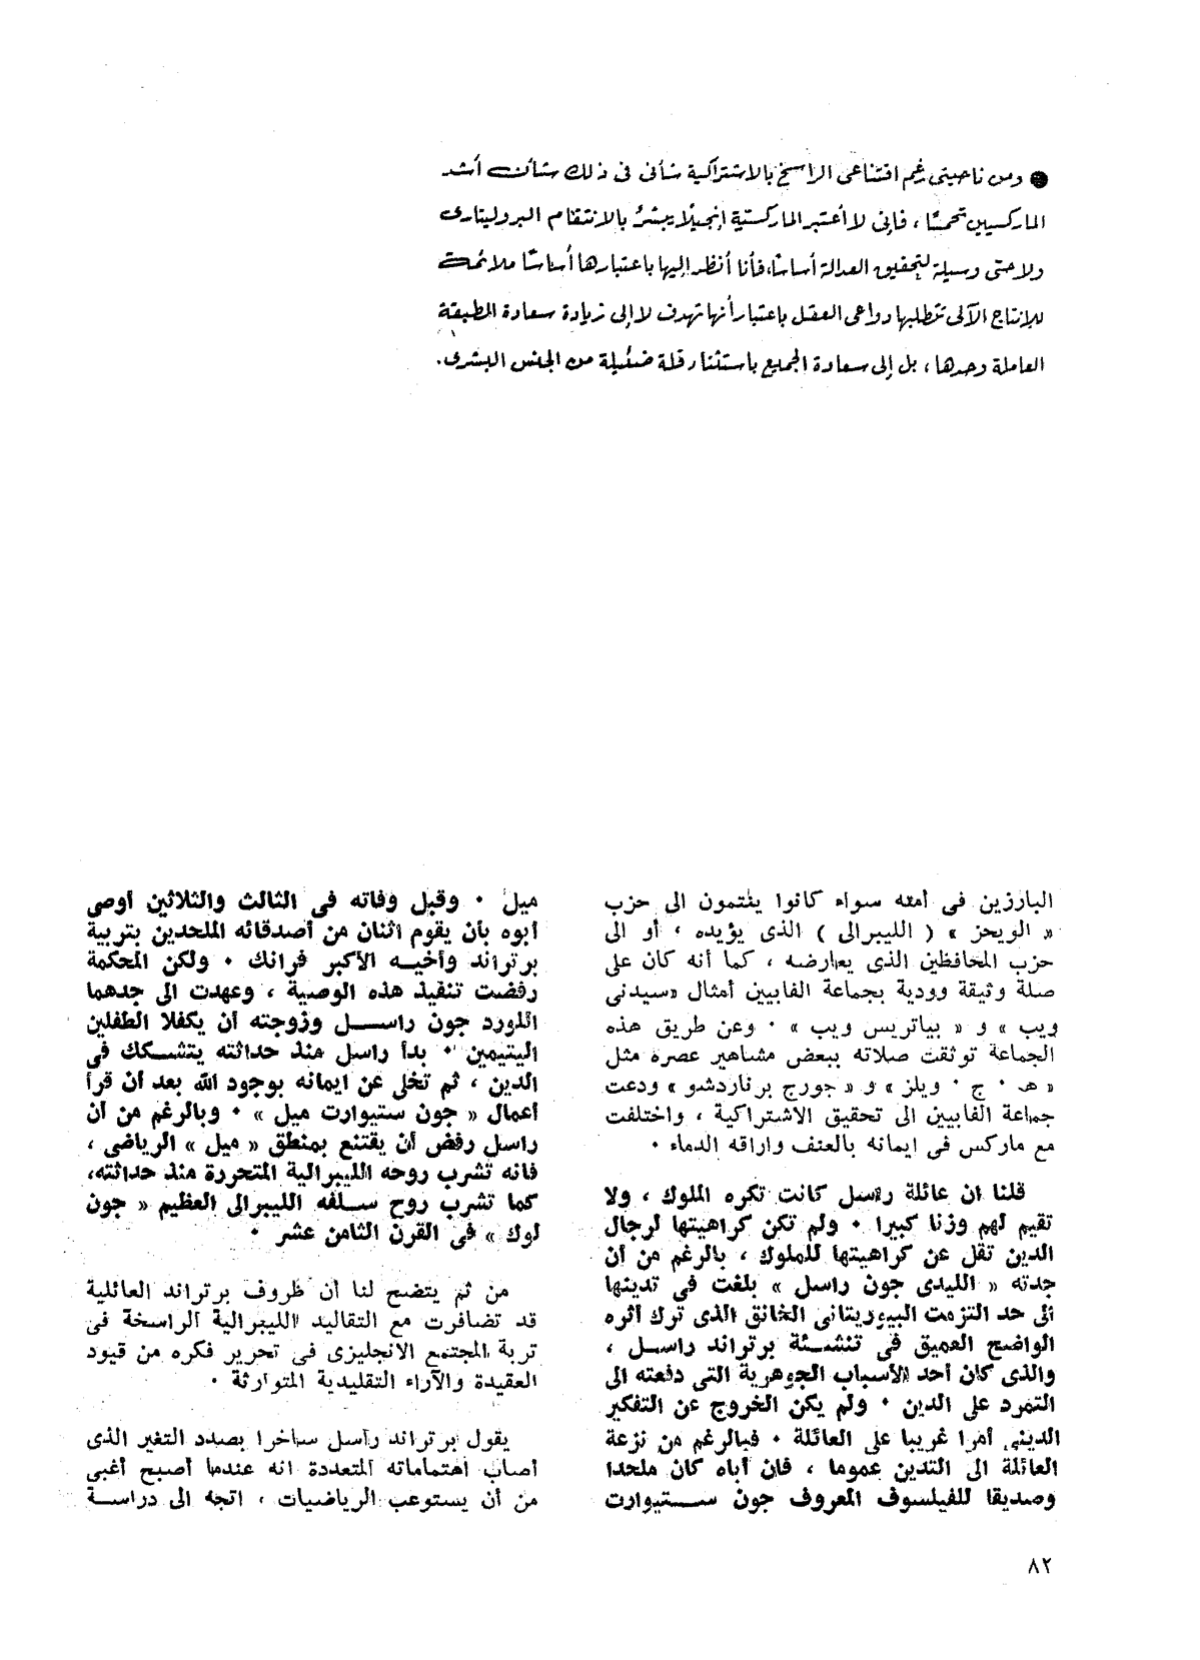 ● ومن ناحيتى رغم اقتناعى الراسخ بالاشتراكية شأنى فى ذلك شأن أشد
الماركسيين تحمسًا ، فإنى لا أعتبر الماركسية إنجيلًا يبشر بالانتقام البروليتارى
ولا حتى وسيلة لتحقيق العدالة أساسًا، فأنا أنظر إليها باعتبارها أساسًا ملائمًا
للإنتاج الآلى تتطلبها دواعى العقل باعتبار أنها تهدف لا إلى زيادة سعادة الطبقة
العاملة وحدها ، بل إلى سعادة الجميع باستثناء قلة ضئيلة من الجنس البشرى.
البارزين فى أمته سواء كانوا ينتمون الى حزب
« الويجز » ( الليبرالى ) الذى يؤيده ، أو الى
حزب المحافظين الذى يعارضه ، كما أنه كان على
صلة وثيقة وودية بجماعة الفابيين أمثال «سيدنى
ويب » و « بياتريس ويب » ٠ وعن طريق هذه
الجماعة توثقت صلاته ببعض مشاهير عصره مثل
« هـ ٠ ج ٠ ويلز » و « جورج برناردشو » ودعت
جماعة الفابيين الى تحقيق الاشتراكية ، واختلفت
مع ماركس فى ايمانه بالعنف واراقه الدماء ٠
قلنا ان عائلة راسل كانت تكره الملوك ، ولا
تقيم لهم وزنا كبيرا ٠ ولم تكن كراهيتها لرجال
الدين تقل عن كراهيتها للملوك ، بالرغم من أن
جدته « الليدى جون راسل » بلغت فى تدينها
الى حد التزمت البيوريتانى الخانق الذى ترك اثره
الواضح العميق فى تنشئة برتراند راسل ،
والذى كان أحد الأسباب الجوهرية التى دفعته الى
التمرد على الدين ٠ ولم يكن الخروج عن التفكير
الدينى أمرا غريبا على العائلة ٠ فبالرغم من نزعة
العائلة الى التدين عموما ، فان أباه كان ملحدا
وصديقا للفيلسوف المعروف جون ستيوارت
ميل ٠ وقبل وفاته فى الثالث والثلاثين أوصى
ابوه بأن يقوم اثنان من أصدقائه الملحدين بتربية
برتراند وأخيه الأكبر فرانك ٠ ولكن المحكمة
رفضت تنفيذ هذه الوصية ، وعهدت الى جدهما
اللورد جون راسل وزوجته أن يكفلا الطفلين
اليتيمين ٠ بدأ راسل منذ حداثته يتشكك فى
الدين ، ثم تخلى عن ايمانه بوجود الله بعد أن قرأ
أعمال « جون ستيوارت ميل » ٠ وبالرغم من أن
راسل رفض أن يقتنع بمنطق « ميل » الرياضى ،
فانه تشرب روحه الليبرالية المتحررة منذ حداثته،
كما تشرب روح سلفه الليبرالى العظيم « جون
لوك » فى القرن الثامن عشر ٠
من ثم يتضح لنا أن ظروف برتراند العائلية
قد تضافرت مع التقاليد الليبرالية الراسخة فى
تربة المجتمع الانجليزى فى تحرير فكره من قيود
العقيدة والآراء التقليدية المتوارثة ٠
يقول برتراند راسل ساخرا بصدد التغير الذى
أصاب اهتماماته المتعددة انه عندما أصبح أغبى
من أن يستوعب الرياضيات ، اتجه الى دراسة
٨٢